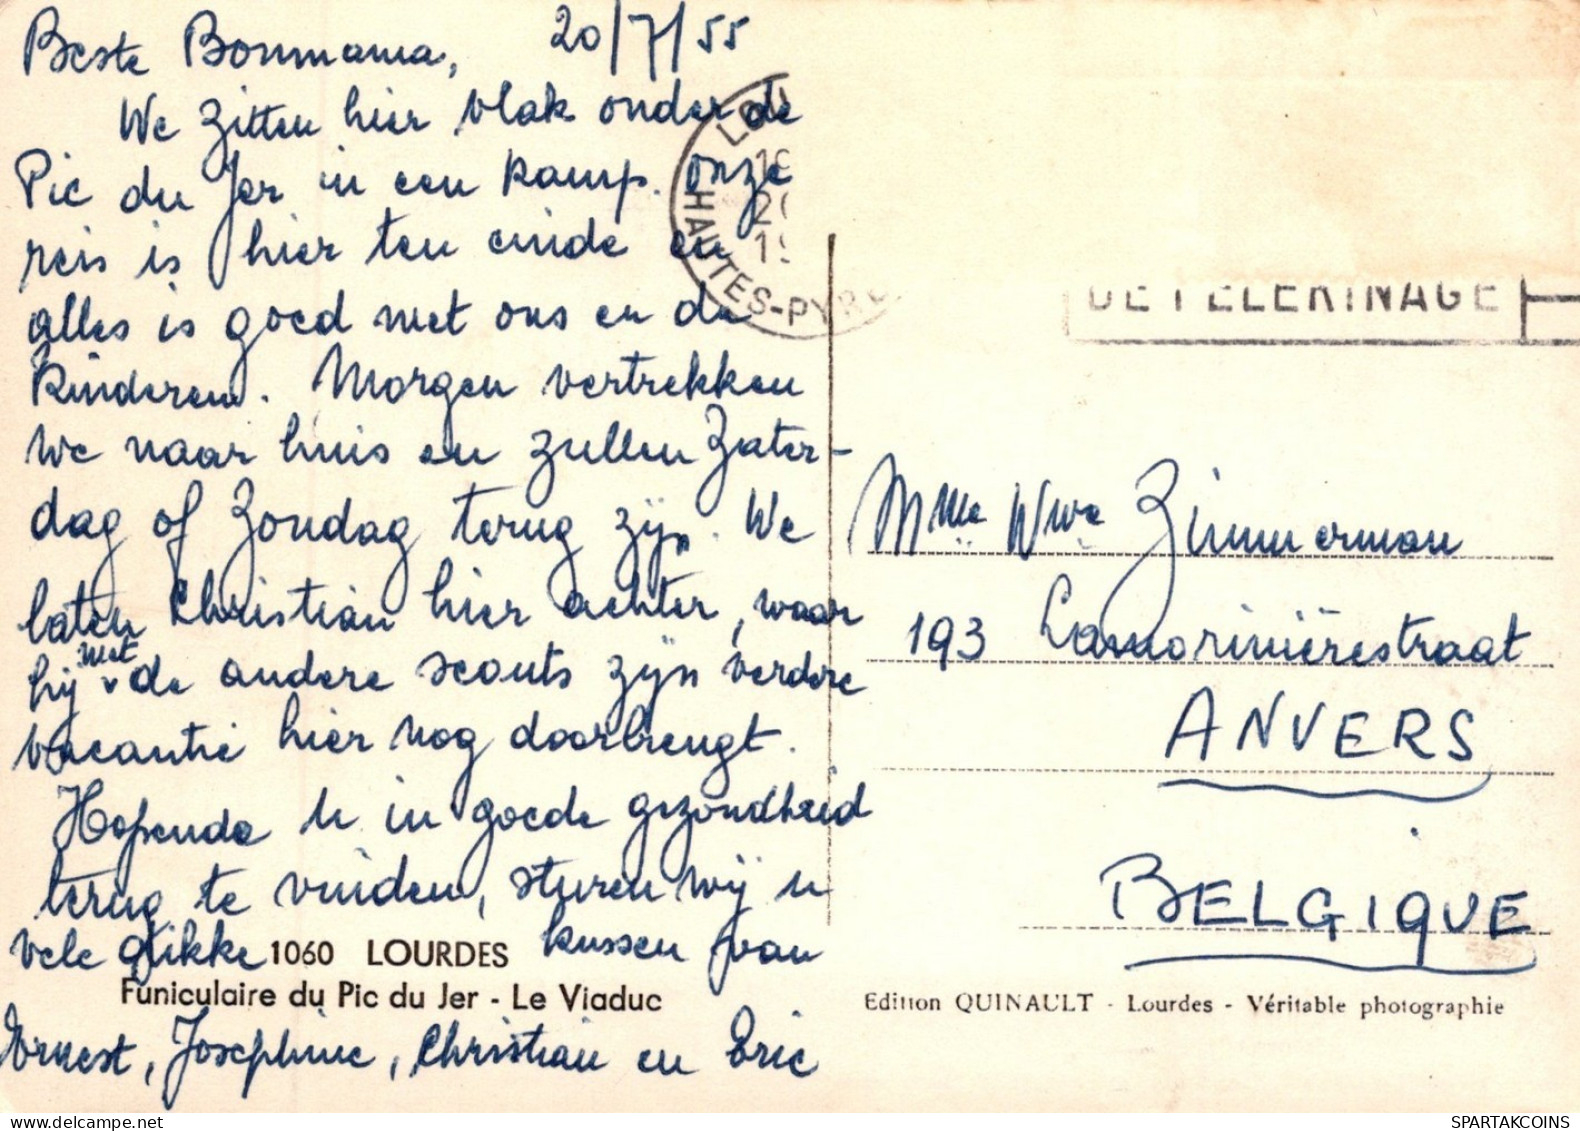 Beste Bonmama, 20/7/55
We zitten hier vlak onder de
Pic du Jer in een kamp. onze
reis is hier ten einde en
alles is goed met ons en de
kinderen. Morgen vertrekken
we naar huis en zullen Zater-
dag of Zondag terug zijn. We
laten Christian hier achter, waar
hij met de andere scouts zijn verdere
vacantie hier nog doorbrengt.
Hopende u in goede gezondheid
terug te vinden, sturen wij u
vele dikke kussen van
Ernest, Josephine, Christian en Eric
1060 LOURDES
Funiculaire du Pic du Jer - Le Viaduc
HAUTES-PYR
DE PELERINAGE
Mme Wwe Zimmerman
193 Lamorinièrestraat
ANVERS
BELGIQUE
Edition QUINAULT - Lourdes - Véritable photographie
SPARTAKCOINS